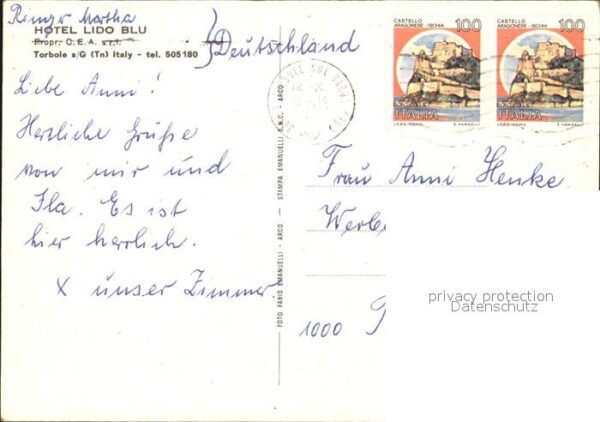 Ringer Martha
HOTEL LIDO BLU
Propr. C.E.A. s.r.l.
Torbole s/G (Tn) Italy - tel. 505180
Deutschland
Liebe Anni!
Herzliche Grüße
von mir und
Ila. Es ist
hier herrlich.
X unser Zimmer
FOTO FABIO EMANUELLI - ARCO — STAMPA EMANUELLI S.N.C. - ARCO
CASTELLO
ARAGONESE - ISCHIA
100
ITALIA
I.P.Z.S.-ROMA
E. VANGELLI
CASTELLO
ARAGONESE - ISCHIA
100
ITALIA
I.P.Z.S.-ROMA
E. VANGELLI
12 -X
Frau Anni Henke
1000
privacy protection
Datenschutz